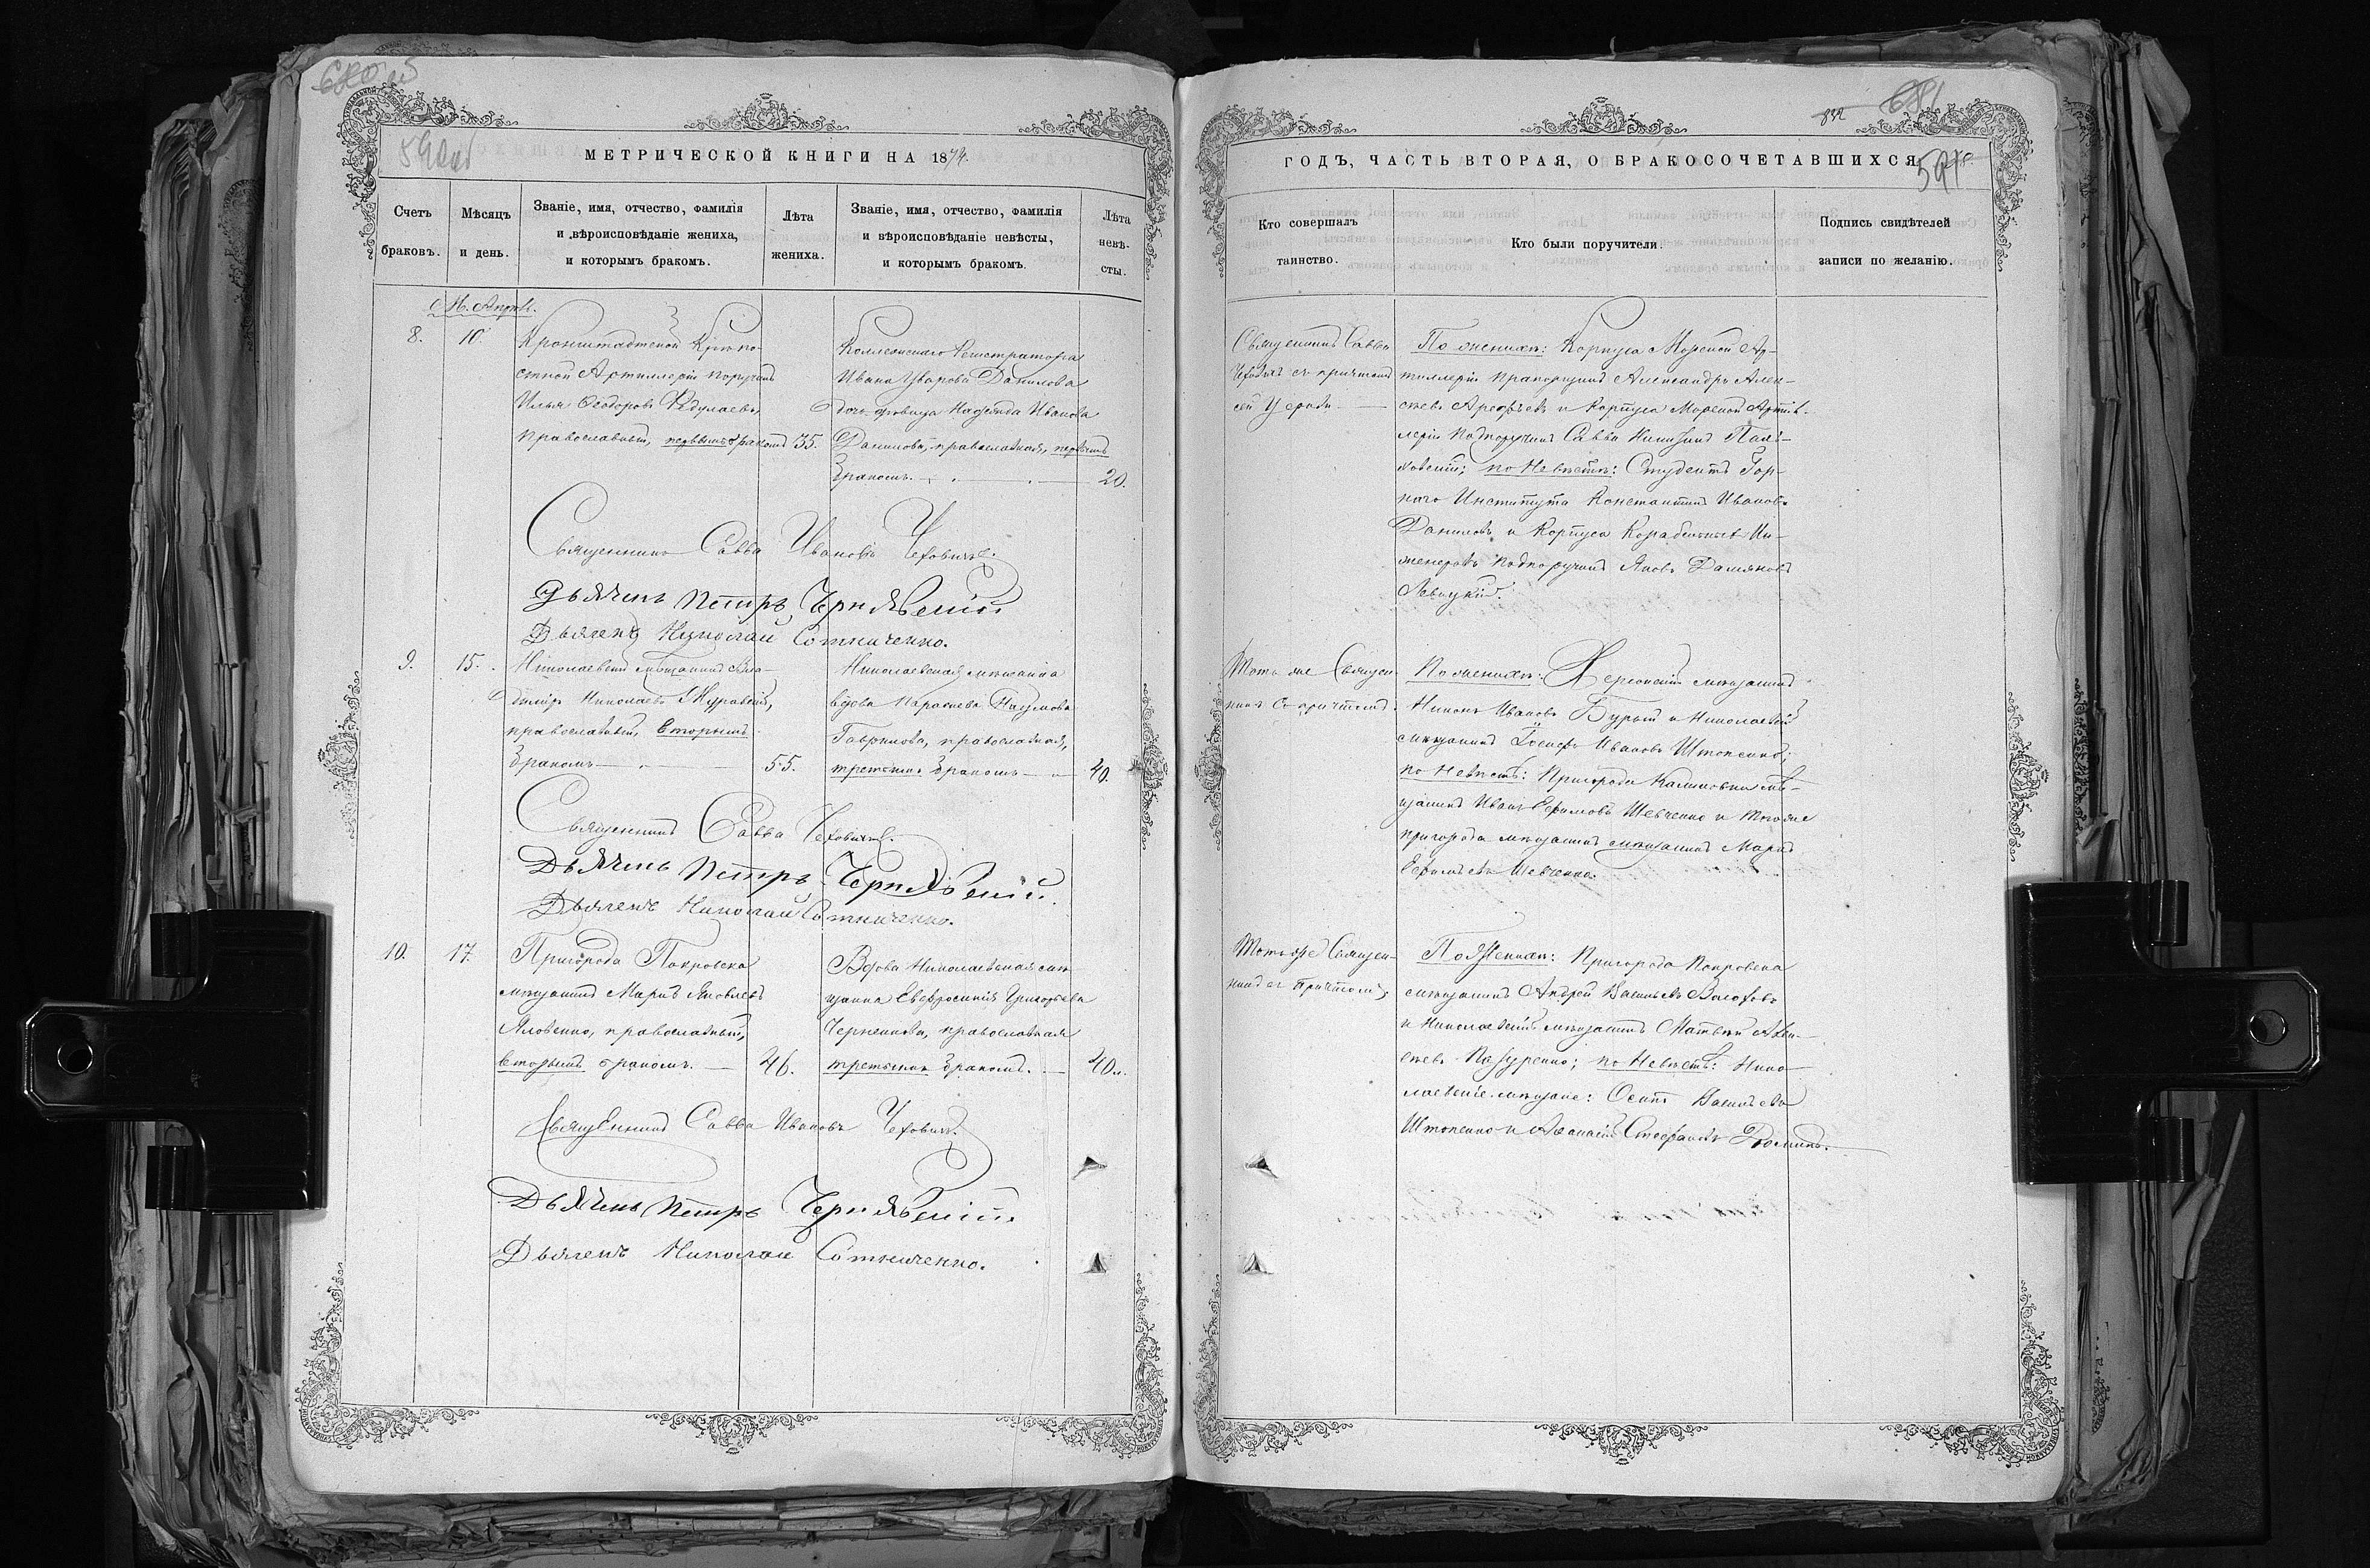 МЕТРИЧЕСКОЙ КНИГИ НА 1874.
Счетъ браковъ.
Мѣсяцъ и день.
Званіе, имя, отчество, фамилія
и вѣроисповѣданіе жениха,
и которымъ бракомъ.
Лѣта
жениха.
Званіе, имя, отчество, фамилія
и вѣроисповѣданіе невѣсты,
и которымъ бракомъ.
Лѣта
невѣ-
сты.
М. Апрѣль.
8.
10.
Кронштадтской Крѣпо-
стной Артиллеріи поручикъ
Илья Ѳеодоровъ
православный, первымъ бракомъ
35.
Коллежскаго Регистратора
Ивана Данилова
дочь девица Надежда Иванова
Данилова, православная, первымъ
бракомъ.
20.
Священникъ Савва Ивановъ Чеховичъ.
Дьячекъ Петръ Чернявскій
Дьячекъ Николай Сотниченко.
9.
15.
Николаевскій мѣщанинъ Вла-
диміръ Николаевъ Журавскій,
православный, вторымъ
бракомъ
55.
Николаевская мѣщанка
вдова Параскева Наумова
Гаврилова, православная,
третьимъ бракомъ
40.
Священникъ Савва Чеховичъ.
Дьячекъ Петръ Чернявскій.
Дьячекъ Николай Сотниченко.
10.
17.
Пригорода Покровска
мѣщанинъ Марко Яковлевъ
Яловенко, православный,
вторымъ бракомъ.
46.
Вдова Николаевская мѣ-
щанка Евфросинія Григорьева
Черненкова, православная
третьимъ бракомъ.
40.
Священникъ Савва Ивановъ Чеховичъ.
Дьячекъ Петръ Чернявскій.
Дьячекъ Николай Сотниченко.
ГОДЪ, ЧАСТЬ ВТОРАЯ, О БРАКОСОЧЕТАВШИХСЯ
681
591
Кто совершалъ
таинство.
Кто были поручители.
Подпись свидѣтелей
записи по желанію.
Священникъ Савва
Чеховичъ съ причтомъ
сей Церкви
По женихѣ: Корпуса Морской Ар-
тиллеріи прапорщикъ Александръ Алек-
сѣевъ Арефьевъ и Корпуса Морской Артил-
леріи Подпоручикъ Савва
по Невѣстѣ: Студентъ Гор-
наго Института Константинъ Ивановъ
Даниловъ и Корпуса Корабельныхъ Ин-
женеровъ Подпоручикъ Яковъ Дамяновъ
Левицкій.
Тотъ же Священ-
никъ съ причтомъ.
По женихѣ: Херсонскій мѣщанинъ
Никонъ Ивановъ Бурый и Николаевскій
мѣщанинъ Іосифъ Ивановъ Штопенко;
по Невѣстѣ: Пригорода Калиновки мѣ-
щанинъ Иванъ Ефимовъ Шевченко и того же
пригорода мѣщанинъ мѣщанинъ Марко
Ефимьевъ Шевченко.
Тотъ же Священ-
никъ съ Причтомъ.
По Женихѣ: Пригорода Покровска
мѣщанинъ Андрей Васильевъ Волоховъ
и Николаевскій мѣщанинъ Матвѣй Алек-
сѣевъ Пазуренко; по Невѣстѣ: Нико-
лаевскіе мѣщане: Осипъ Васильевъ
Штопенко и Аѳанасій Стефановъ